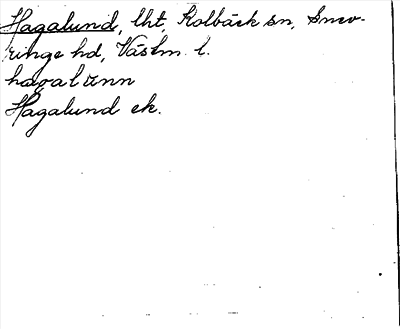 Hagalund, lht, Kolbäck sn, Snev-
ringe hd, Västm. l.
hagalunn
Hagalund ek.